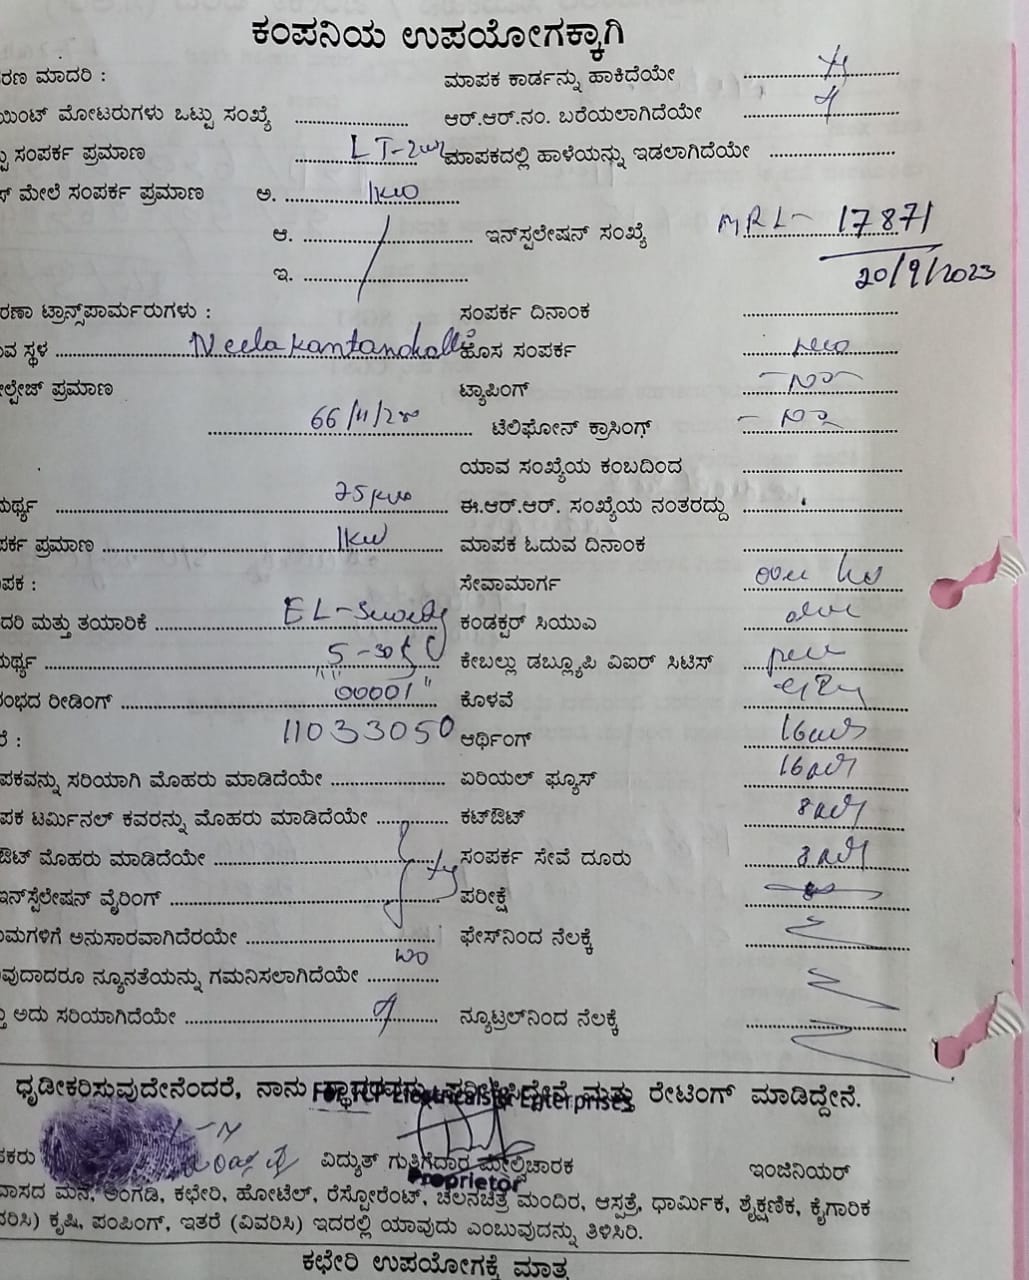 ಕಂಪನಿಯ ಉಪಯೋಗಕ್ಕಾಗಿ
ರಣ ಮಾದರಿ : ಮಾಪಕ ಕಾರ್ಡನ್ನು ಹಾಕಿದೆಯೇ
ಯಿಂಟ್ ಮೋಟರುಗಳು ಒಟ್ಟು ಸಂಖ್ಯೆ ಆರ್.ಆರ್.ನಂ. ಬರೆಯಲಾಗಿದೆಯೇ
ಟು ಸಂಪರ್ಕ ಪ್ರಮಾಣ LT-2 ಮಾಪಕದಲ್ಲಿ ಹಾಳೆಯನ್ನು ಇಡಲಾಗಿದೆಯೇ
ಸ್ ಮೇಲೆ ಸಂಪರ್ಕ ಪ್ರಮಾಣ ಅ. 1kw
ಆ. ಇನ್‌ಸ್ಟಲೇಷನ್ ಸಂಖ್ಯೆ MRL- 17871
ಇ. 20/9/2023
ರಣಾ ಟ್ರಾನ್ಸ್‌ಪಾರ್ಮರುಗಳು : ಸಂಪರ್ಕ ದಿನಾಂಕ
ವ ಸ್ಥಳ Neelakantanahalli ಹೊಸ ಸಂಪರ್ಕ new
ಲ್ಟೇಜ್ ಪ್ರಮಾಣ ಟ್ಯಾಪಿಂಗ್ - No
66/11/200 ಟೆಲಿಫೋನ್ ಕ್ರಾಸಿಂಗ್ - No
ಯಾವ ಸಂಖ್ಯೆಯ ಕಂಬದಿಂದ
ಮರ್ಥ್ಯ 25kw ಈ.ಆರ್.ಆರ್. ಸಂಖ್ಯೆಯ ನಂತರದ್ದು
ಪರ್ಕ ಪ್ರಮಾಣ 1kw ಮಾಪಕ ಓದುವ ದಿನಾಂಕ
ಪಕ : ಸೇವಾಮಾರ್ಗ
ದರಿ ಮತ್ತು ತಯಾರಿಕೆ ಕಂಡಕ್ಟರ್ ಸಿಯುಎ
ಮರ್ಥ್ಯ 5-30 ಕೇಬಲ್ಲು ಡಬ್ಲ್ಯೂಪಿ ವಿಐಆರ್ ಸಿಟಿಸ್
ಂಭದ ರೀಡಿಂಗ್ 00001 ಕೊಳವೆ
ರೆ : 11033050 ಆರ್ಥಿಂಗ್
ಪಕವನ್ನು ಸರಿಯಾಗಿ ಮೊಹರು ಮಾಡಿದೆಯೇ ಏರಿಯಲ್ ಫ್ಯೂಸ್
ಪಕ ಟರ್ಮಿನಲ್ ಕವರನ್ನು ಮೊಹರು ಮಾಡಿದೆಯೇ ಕಟ್‌ಔಟ್
ಔಟ್ ಮೊಹರು ಮಾಡಿದೆಯೇ ಸಂಪರ್ಕ ಸೇವೆ ದೂರು
ಇನ್‌ಸ್ಟೆಲೇಷನ್ ವೈರಿಂಗ್ ಪರೀಕ್ಷೆ
ಯಮಗಳಿಗೆ ಅನುಸಾರವಾಗಿದೆರಯೇ ಫೇಸ್‌ನಿಂದ ನೆಲಕ್ಕೆ
ವುದಾದರೂ ನ್ಯೂನತೆಯನ್ನು ಗಮನಿಸಲಾಗಿದೆಯೇ No
ತು ಅದು ಸರಿಯಾಗಿದೆಯೇ ನ್ಯೂಟ್ರಲ್‌ನಿಂದ ನೆಲಕ್ಕೆ
ಧೃಡೀಕರಿಸುವುದೇನೆಂದರೆ, ನಾನು ಸ್ಥಾವರವನ್ನು ಪರೀಕ್ಷಿಸಿದ್ದೇನೆ ಮತ್ತು ರೇಟಿಂಗ್ ಮಾಡಿದ್ದೇನೆ.
Electricals & Enterprises
ಪಕರು ವಿದ್ಯುತ್ ಗುತ್ತಿಗೆದಾರ ಮೇಲ್ವಿಚಾರಕ ಇಂಜಿನಿಯರ್
Proprietor
ವಾಸದ ಮನೆ, ಅಂಗಡಿ, ಕಛೇರಿ, ಹೋಟೆಲ್, ರೆಸ್ಟೋರೆಂಟ್, ಚಲನಚಿತ್ರ ಮಂದಿರ, ಆಸ್ಪತ್ರೆ, ಧಾರ್ಮಿಕ, ಶೈಕ್ಷಣಿಕ, ಕೈಗಾರಿಕ
ವರಿಸಿ) ಕೃಷಿ, ಪಂಪಿಂಗ್, ಇತರೆ (ವಿವರಿಸಿ) ಇದರಲ್ಲಿ ಯಾವುದು ಎಂಬುವುದನ್ನು ತಿಳಿಸಿರಿ.
ಕಛೇರಿ ಉಪಯೋಗಕ್ಕೆ ಮಾತ್ರ